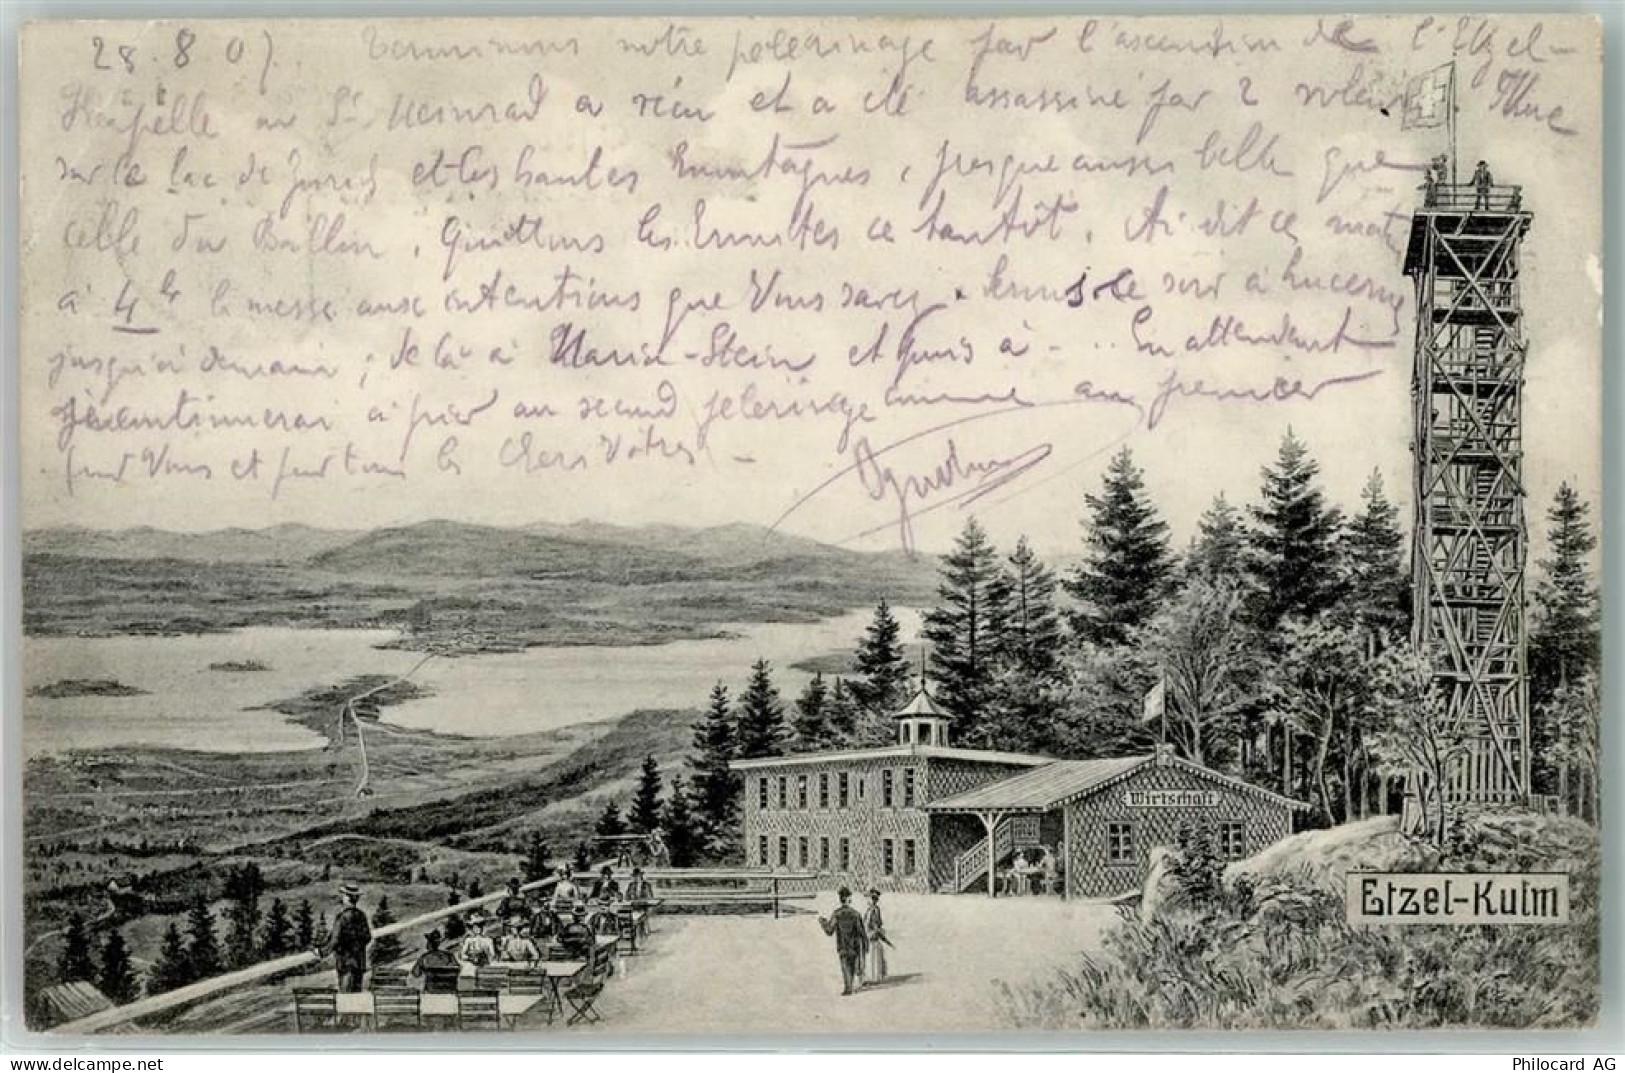 28.8.07. Terminons notre pélerinage par l'ascension de l'Etzel-
Chapelle ou St Meinrad a vécu et a été assassiné par 2 voleurs. Vue
sur le lac de Zurich et les hautes montagnes, presque aussi belle que
celle du Ballon. Quittons les Ermites ce tantôt. Ai dit ce matin
à 4 h la messe aux intentions que Vous savez. Serons ce soir à Lucerne
jusqu'à demain; de là à Maria-Stein et puis à - .. En attendant
je continuerai à prier au second pélerinage comme au premier
pour Vous et pour tous les chers Vôtres -
Wirtschaft
Etzel-Kulm
Philocard AG
www.delcampe.net